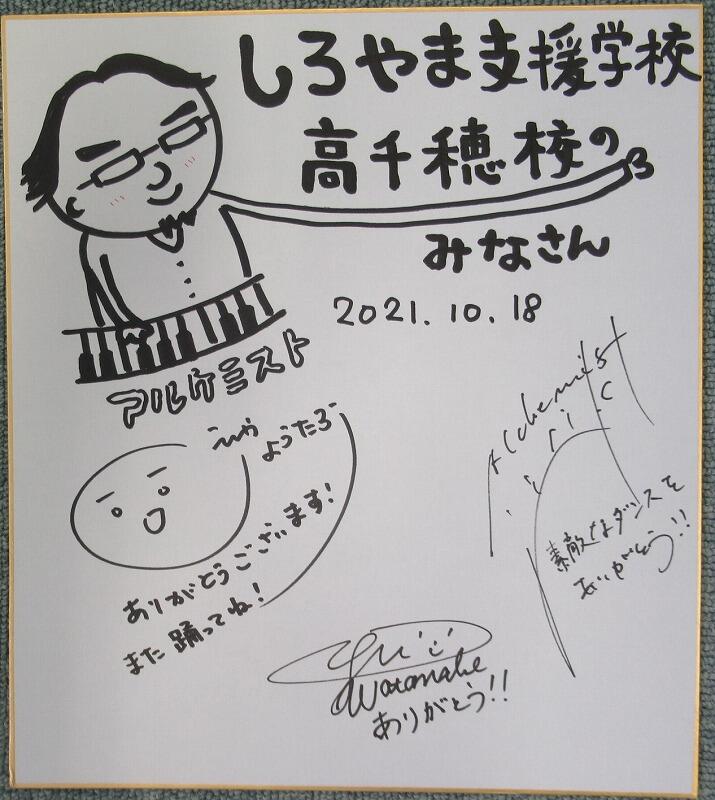 しろやま支援学校
高千穂校の
みなさん
2021.10.18
アルケミスト
ようたろー
ありがとうございます!
また踊ってね!
Alchemist
素敵なダンスを
ありがとう!!
Watanabe
ありがとう!!